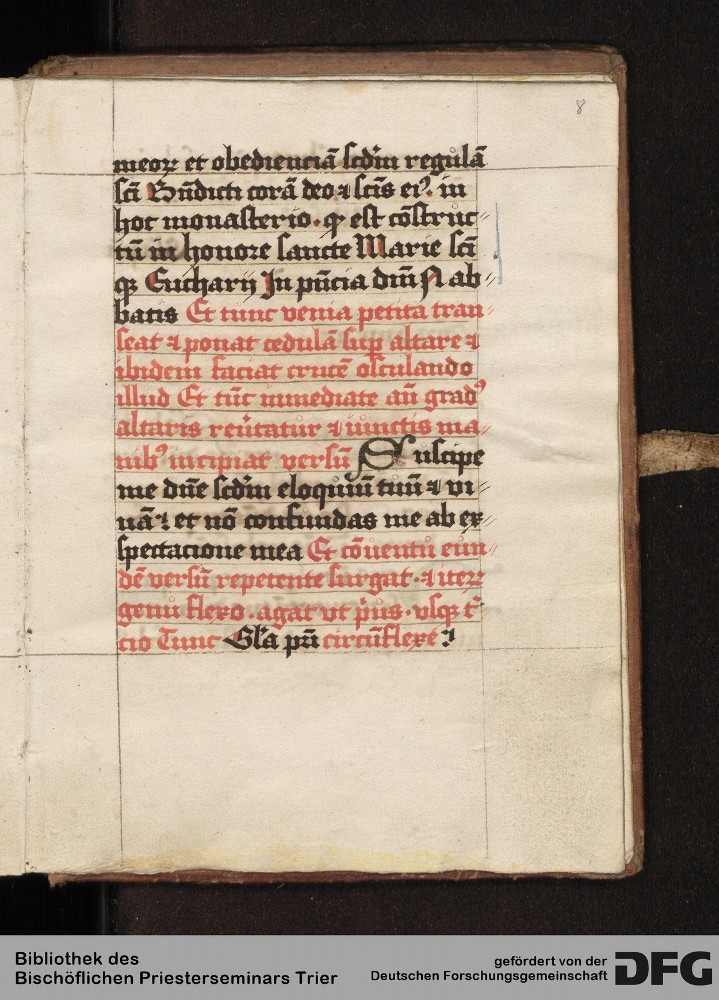 8
meoꝝ et obedienciā scd'm regulā
scī Bn̄dicti corā deo ⁊ scīs eiꝰ. in
hoc monasterio. qꝫ est cōstruc⸗
tū in honore sancte Marie scī
qꝫ Eucharij In pn̄cia dm̄ N ab⸗
batis Et tunc venia petita tran⸗
seat ⁊ ponat cedulā suꝑ altare ⁊
ibidem faciat crucē osculando
illud Et tūc inmediate an̄ gradꝰ
altaris reu'tatur ⁊ iunctis ma⸗
nibꝰ incipiat versū Suscipe
me dn̄e scd'm eloquiū tuū ⁊ vi⸗
uā: et nō confundas me ab ex⸗
spectacione mea Et cōuentu eun⸗
dē versū repetente surgat. ⁊ iteꝝ
genu flexo. agat vt p'us. vsqꝫ t'⸗
cio Tunc Gl'a pr̄i circūflexe :
Bibliothek des
Bischöflichen Priesterseminars Trier
gefördert von der
Deutschen Forschungsgemeinschaft
DFG